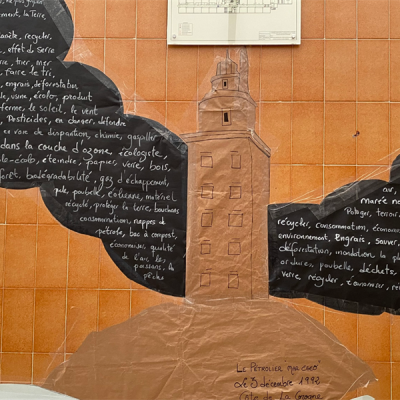 la Terre,
recycler,
effet de serre
trier, mer
faire le tri,
engrais, déforestation
usine, écolo, produit
ferme, le soleil, le vent
Pesticides, en danger, défendre
en voie de disparition, chimie, gaspiller
dans la couche d'ozone, écologiste,
écolo, éteindre, papier, verre, bois,
forêt, biodégradabilité, gaz d'échappement,
poubelle, éolienne, matériel
recyclé, protéger la terre, bouchons
consommation, nappes de
pétrole, bac à compost,
économiser, qualité
de l'air, les
poissons, la
pêche
air,
marée no
Potager, terr
recycler, consommation, économi
environnement, Engrais, sauver,
déforestation, inondation, la pla
ordures, poubelle, déchets
verre recyclé, économiser, re
Le Pétrolier "Mar Egeo"
Le 3 décembre 1992
Côte de La Corogne